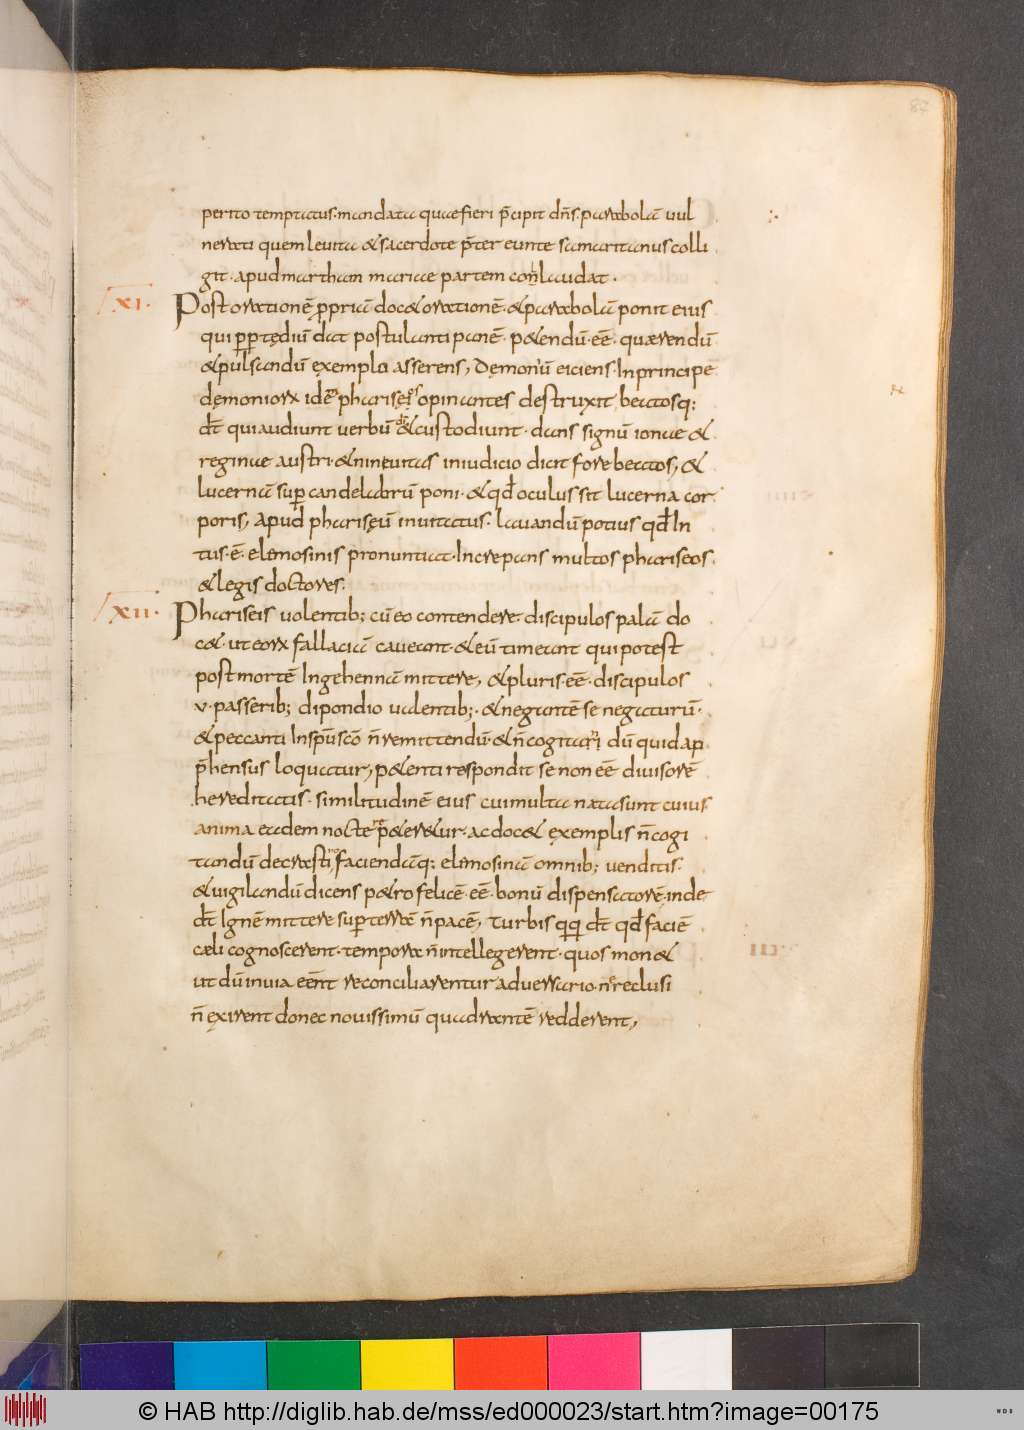 82
perito temptatus. mandata quae fieri p̄cipit dn̄s. parabolā vul
nerati quem leuita & sacerdote p̄ter eunte samaritanus colli
git. apud martham mariae partem conlaudat.
XI. Post orationē ꝓpriā doc& orationē. & parabolā ponit eius
qui ꝓp tędiū dat postulanti panē. p&endū. eē. quærendū
& pulsandū exemplo asserens, Dęmoniū eiciens. In principe
dęmoniorx idē pharisęos opinantes destruxit beatosq;
dt̄ qui audiunt uerbū dī & custodiunt. dans signū ionae &
reginae austri. & nineuitas in iudicio dicit fore beatos, &
lucernā sup candelabrū poni. & qđ oculus sit lucerna cor
poris, Apud pharisęū inuitatus. lauandū potius qđ In
tus. ē. elemosinis pronuntiat. Increpans multos phariseos
& legis doctores.
XII. Phariseis uolentib; cū eo contendere. discipulos palā do
c&. ut eorx fallaciā caueant. & eū timeant qui potest
post mortē In gehennā mittere, & pluris. eē. discipulos
v. passerib; dipondio ualentib;. & negantē se negaturū.
& peccanti In sp̄u sc̄o n̄ remittendū. & n̄ cogitari dū quid ap
p̄hensus loquatur, p&enti respondit se non eē diuisorē
hereditatis. similitudinē eius cui multa nata sunt cuius
anima eadem nocte rep&er&ur. ac doc& exemplis n̄ cogi
tandū de crastino, faciendāq; elemosinā omnib; venditis.
& uigilandū dicens p&ro felicē eē. bonū dispensatorē. inde
dt̄ Ignē mittere sup terrā n̄ pacē, Turbis qq dt̄ qđ faciē
cæli cognoscerent. tempora n̄ intellegerent. quos mon&
ut dū in uia eēnt reconciliarentur aduersario. ne reclusi
n̄ exirent donec nouissimū quadrantē redderent,
© HAB http://diglib.hab.de/mss/ed000023/start.htm?image=00175